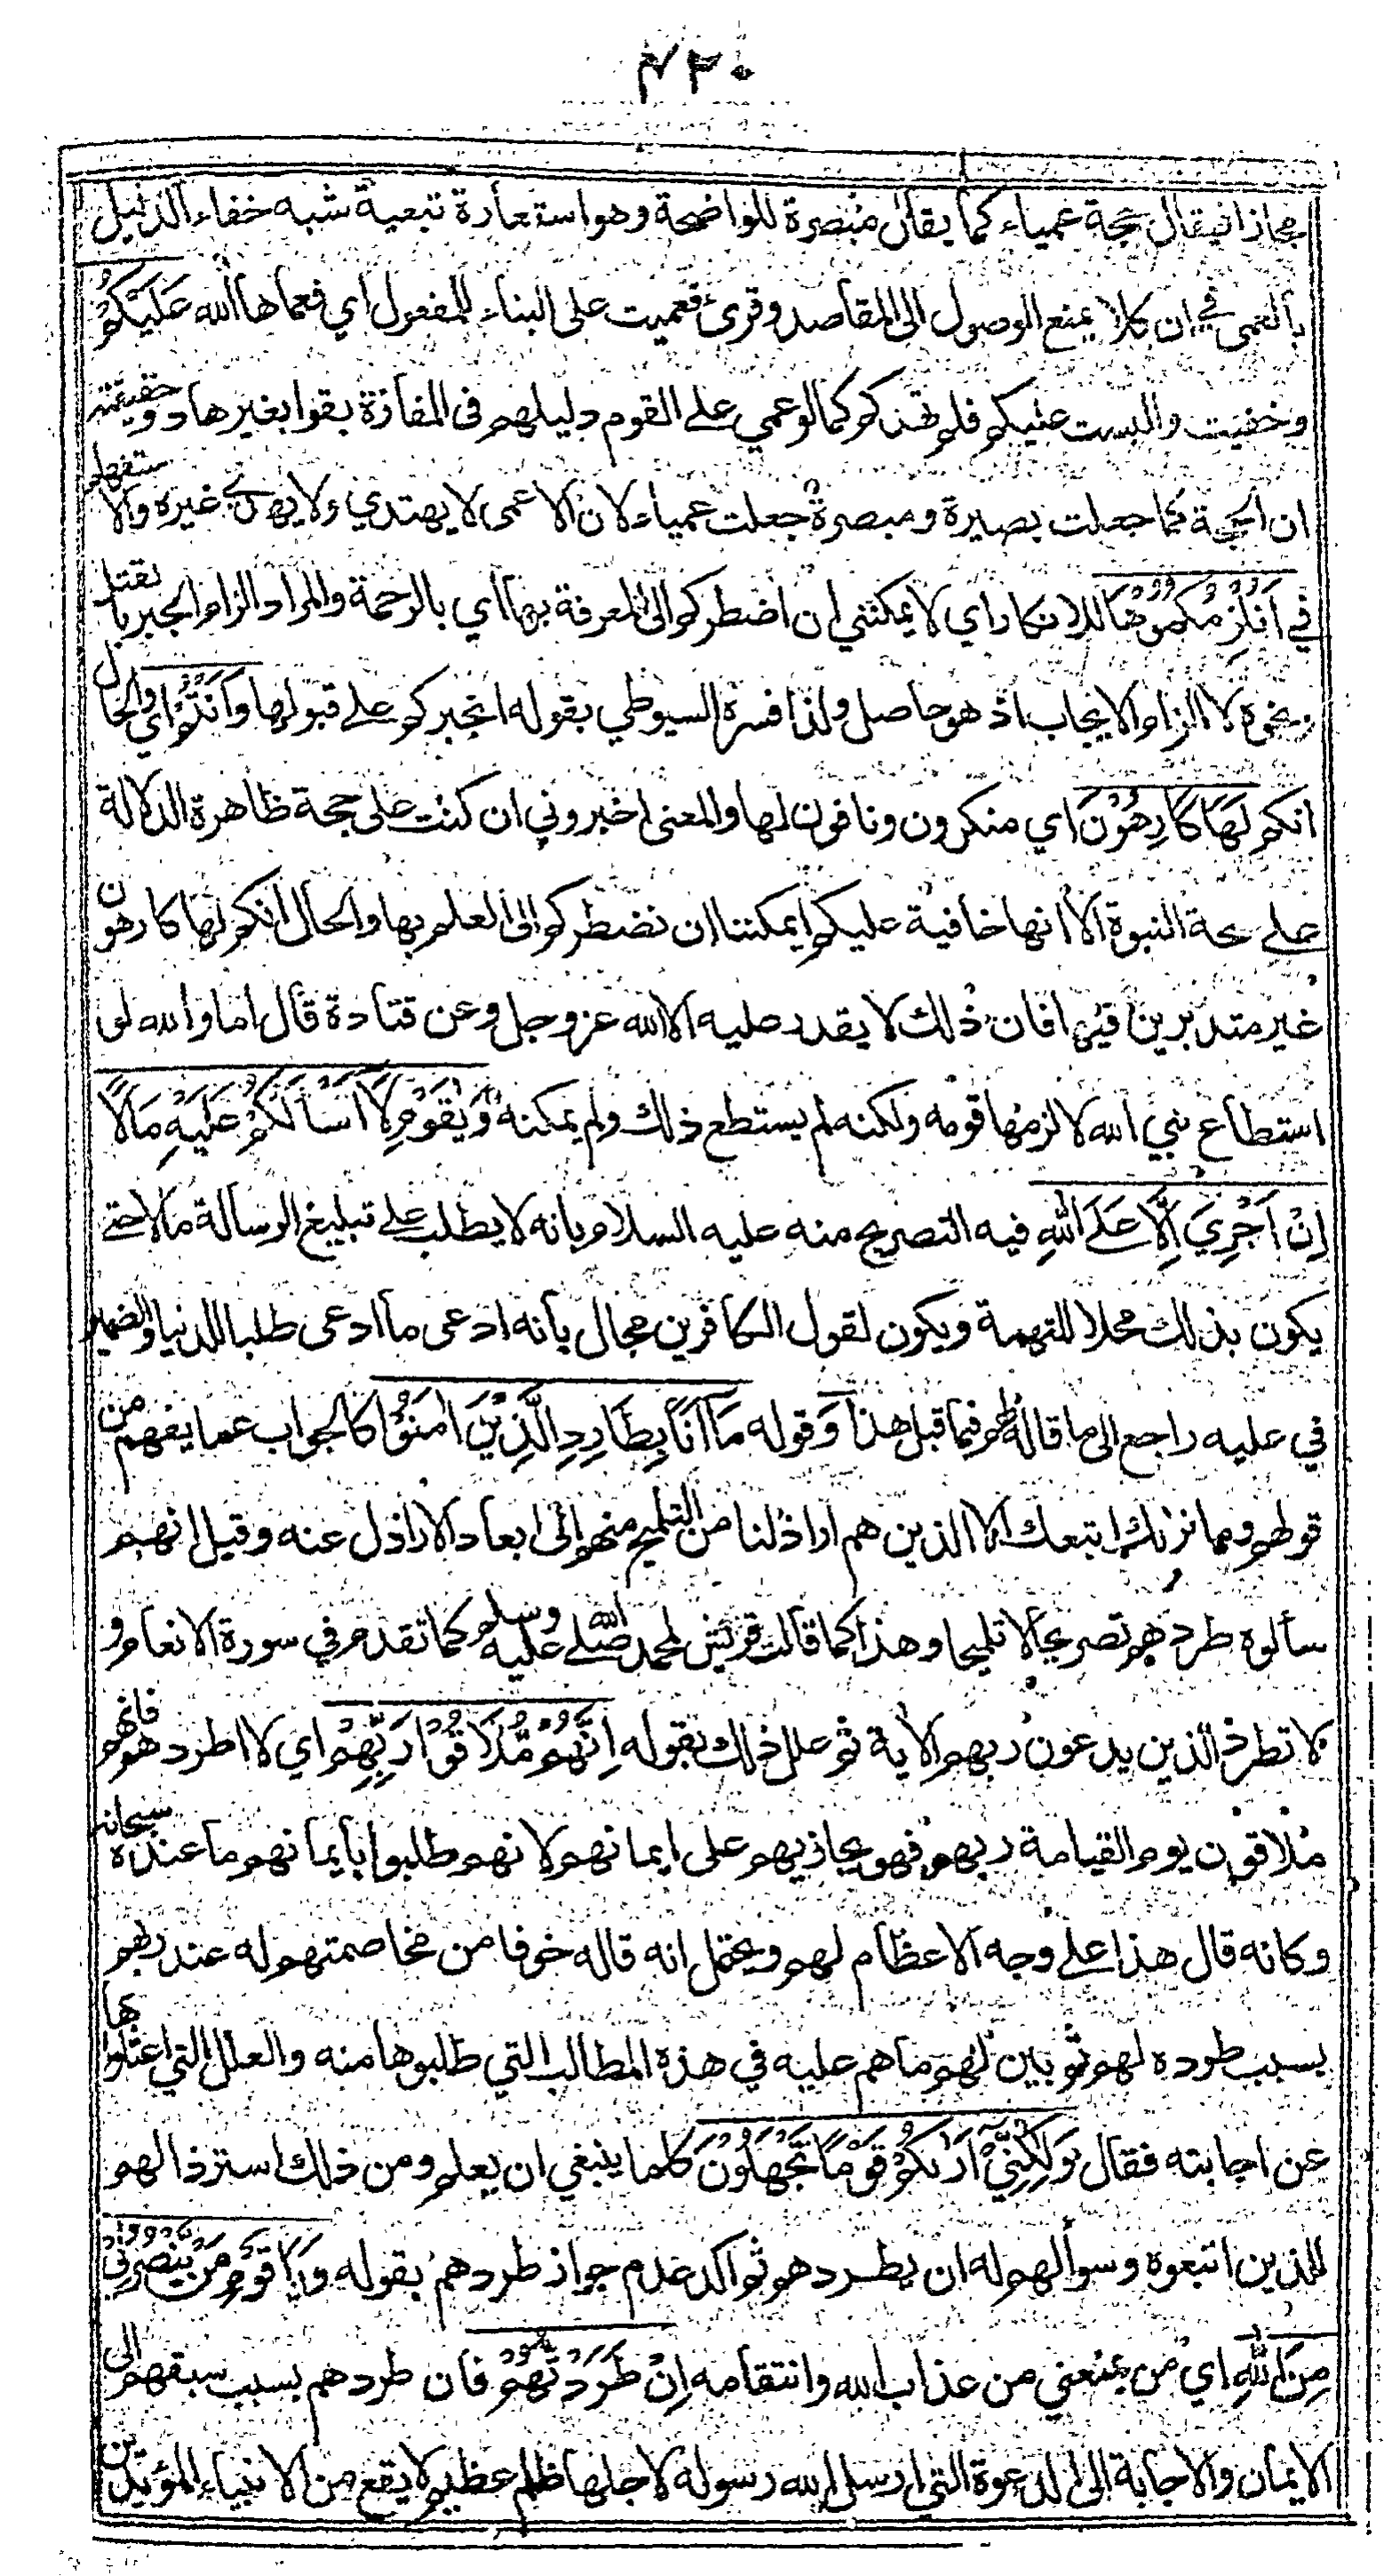 ٤٢٠
مجازا فيقال حجة عمياء كما يقال مبصرة للواضحة وهو استعارة تبعية شبه خفاء الدليل
بالعمى في ان كلا يمنع الوصول الى المقاصد وقرئ فعميت على البناء للمفعول اي فعماها الله عَلَيْكُمْ
وخفيت والبست عليكم فلم تهدكم كما لو عمي على القوم دليلهم فى المفازة بقوا بغير هاد وحقيقته
ان الحجة كما جعلت بصيرة ومبصرة جعلت عمياء لان الاعمى لا يهتدي ولا يهدي غيره والاستفهام
في اَنُلْزِمُكُمُوْهَا للانكار اي لا يمكنني ان اضطركم الى المعرفة بها اي بالرحمة والمراد الزام الجبر بالقتل
ونحوه لا الزام الايجاب اذ هو حاصل ولذا فسره السيوطي بقوله انجبركم على قبولها وَاَنْتُمْ اي والحال
انكم لَهَا كَارِهُوْنَ اي منكرون ونافون لها والمعنى اخبروني ان كنت على حجة ظاهرة الدلالة
على صحة النبوة الا انها خافية عليكم ايمكننا ان نضطركم الى العلم بها والحال انكم لها كارهون
غير متدبرين فيها فان ذلك لا يقدر عليه الا الله عز وجل وعن قتادة قال اما والله لو
استطاع نبي الله لالزمها قومه ولكنه لم يستطع ذلك ولم يمكنه وَيٰقَوْمِ لَا اَسْأَلُكُمْ عَلَيْهِ مَالًا
اِنْ اَجْرِيَ اِلَّا عَلَى اللّٰهِ فيه التصريح منه عليه السلام بانه لا يطلب على تبليغ الرسالة مالا حتى
يكون بذلك محلا للتهمة ويكون لقول الكافرين مجال بانه ادعى ما ادعى طلبا للدنيا والضمير
في عليه راجع الى ما قاله لهم فيما قبل هذا وَقوله مَا اَنَا بِطَارِدِ الَّذِيْنَ اٰمَنُوْا كالجواب عما يفهم من
قولهم وما نراك اتبعك الا الذين هم اراذلنا من التلميح منهم الى ابعاد الاراذل عنه وقيل انهم
سألوه طردهم تصريحا لا تلميحا وهذا كما قالت قريش لمحمد صلى الله عليه وسلم كما تقدم في سورة الانعام و
لا تطرد الذين يدعون ربهم الاية ثم علل ذلك بقوله اِنَّهُمْ مُّلَاقُوْا رَبِّهِمْ اي لا اطردهم فانهم
ملاقون يوم القيامة ربهم فهو يجازيهم على ايمانهم لانهم طلبوا بايمانهم ما عنده سبحانه
وكانه قال هذا على وجه الاعظام لهم ويحتمل انه قاله خوفا من مخاصمتهم له عند ربهم
بسبب طرده لهم ثم بين لهم ما هم عليه في هذه المطالب التي طلبوها منه والعلل التي اعتلوا بها
عن اجابته فقال وَلٰكِنِّيْ اَرٰىكُمْ قَوْمًا تَجْهَلُوْنَ كلما ينبغي ان يعلم ومن ذلك استرذالهم
للذين اتبعوه وسوألهم له ان يطردهم ثم اكد عدم جواز طردهم بقوله وَيَا قَوْمِ مَنْ يَّنْصُرُنِيْ
مِنَ اللّٰهِ اي من يمنعني من عذاب الله وانتقامه اِنْ طَرَدْتُّهُمْ فان طردهم بسبب سبقهم الى
الايمان والاجابة الى الدعوة التي ارسل الله رسوله لاجلها ظلم عظيم لا يقع من الانبياء المؤيدين